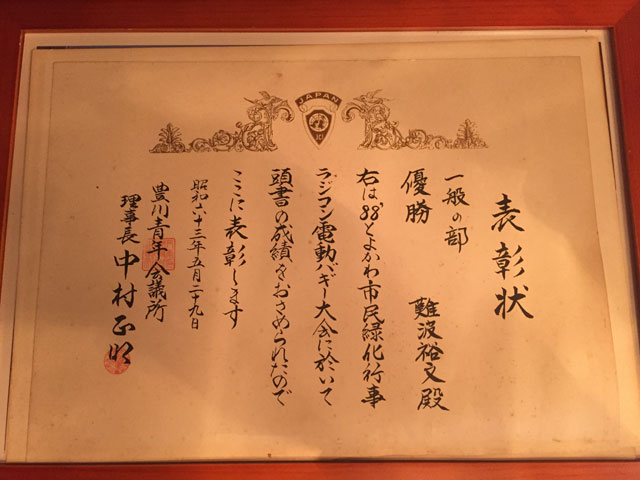 JAPAN
表彰状
一般の部
優勝
難波裕文殿
右は'88とよかわ市民緑化行事
ラジコン電動バギー大会に於いて
頭書の成績をおさめられたので
ここに表彰します
昭和六十三年五月二十九日
豊川青年会議所
理事長 中村正明